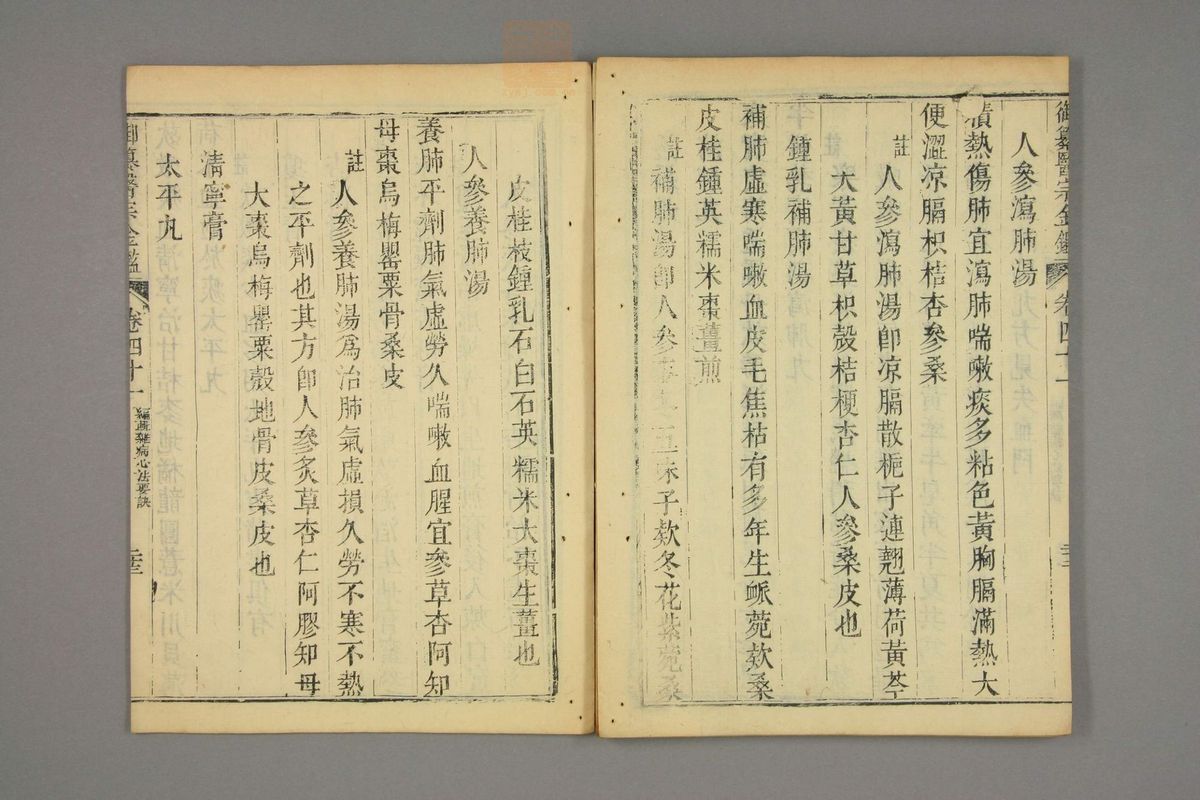 御纂醫宗金鑑
卷四十一
人參瀉肺湯
積熱傷肺宜瀉肺喘嗽痰多粘色黃胸膈滿熱大
便澀涼膈枳桔杏參桑
註
人參瀉肺湯卽涼膈散梔子連翹薄荷黃芩
大黃甘草枳殼桔梗杏仁人參桑皮也
鍾乳補肺湯
補肺虛寒喘嗽血皮毛焦枯有多年生䘑菀欵桑
皮桂鍾英糯米棗薑煎
註
補肺湯卽人參麥冬五味子欵冬花紫菀桑
皮桂枝鍾乳石白石英糯米大棗生薑也
人參養肺湯
養肺平劑肺氣虛勞久喘嗽血腥宜參草杏阿知
母棗烏梅罌粟骨桑皮
註
人參養肺湯爲治肺氣虛損久勞不寒不熱
之平劑也其方卽人參炙草杏仁阿膠知母
大棗烏梅罌粟殼地骨皮桑皮也
清寧膏
太平丸
御纂醫宗金鑑
卷四十一
編輯雜病心法要訣
三十三